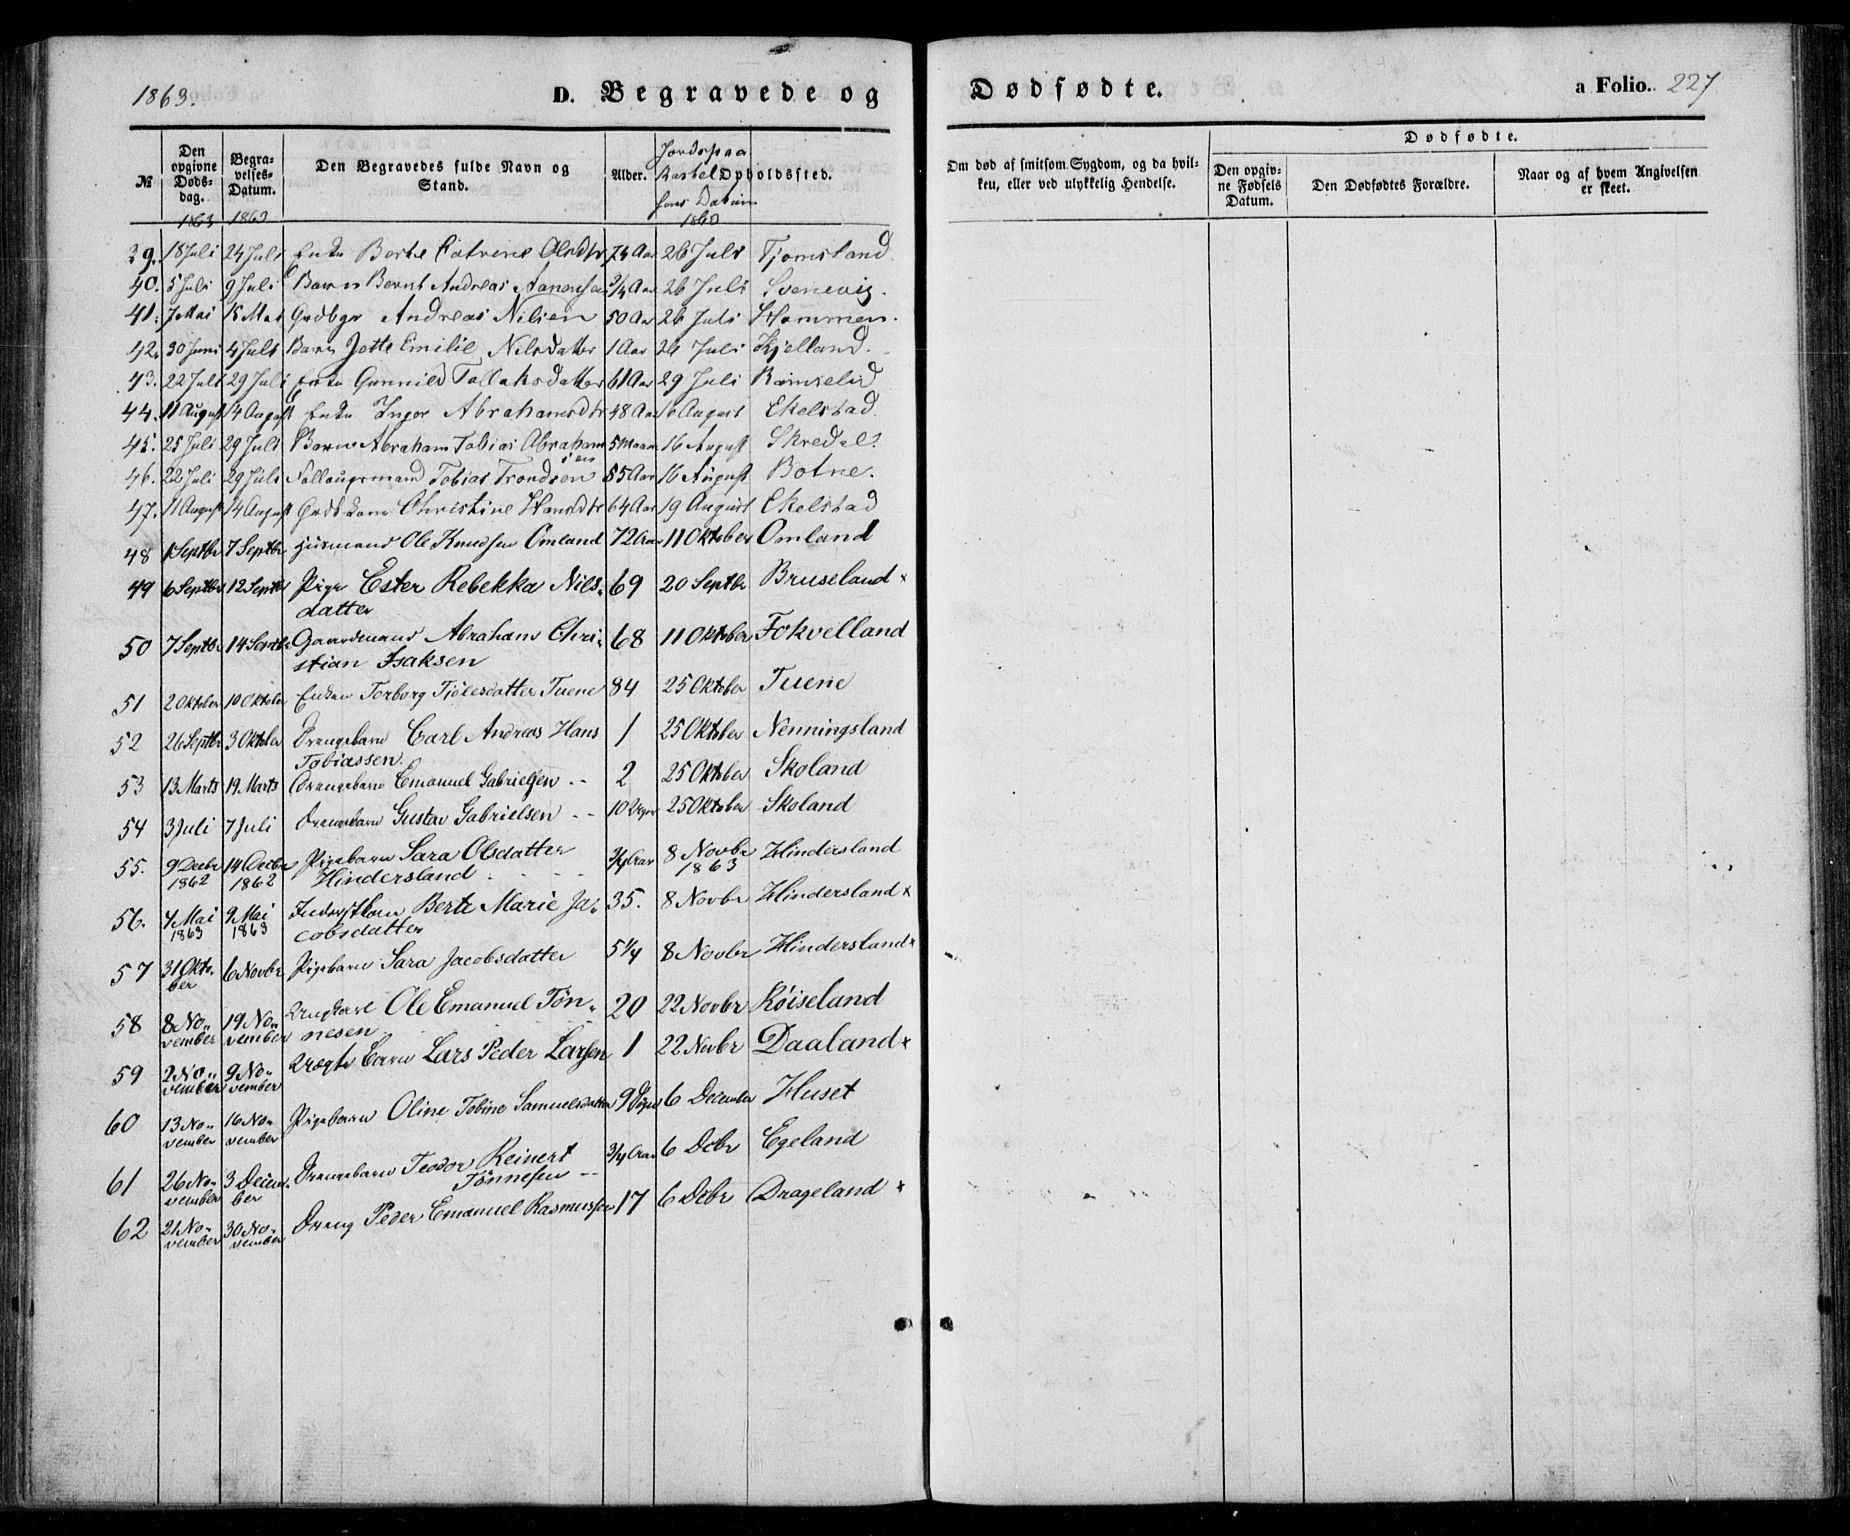 1863. D. Begravede og Dødfødte. a Folio. 227
№ Den opgivne Døds-dag. Begra-velses-Datum. Den Begravedes fulde Navn og Stand. Alder. Jordspaa Opholdssted. Om død af smitsom Sygdom, og da hvil-ken, eller ved ulykkelig Hendelse. Dødfødte. Den opgiv-ne Fødsels Datum. Den Dødfødtes Forældre. Naar og af hvem Angivelsen er skeet.
1863 1863 1863
39. 18 Juli 24 Juli Enke Berte Catrine Olsdtr 74 Aar 26 Juli Tjomsland
40. 5 Juli 9 Juli Barn Bernt Andreas Aanensen 3/4 Aar 26 Juli Svenevig.
41. 7 Mai 15 Mai Grdbgr Andreas Nilsen 50 Aar 26 Juli Stommen.
42. 30 Juni 4 Juli Barn Jotte Emilie Nilsdatter 1 Aar 26 Juli Kjelland.
43. 22 Juli 29 Juli Enke Gunnild Tallaksdatter 61 Aar 29 Juli Ramselid
44. 11 August 14 August Enke Inger Abrahamsdtr 48 Aar 16 August Ekelstad
45. 25 Juli 29 Juli Barn Abraham Tobias Abraham
sen 5 Maan 16 August Skredal.
46. 22 Juli 29 Juli Follaugsmand Tobias Trondsen 55 Aar 16 August Botne.
47. 11 August 14 August Grdb Kone Christine Hansdtr 64 Aar 19 August Ekelstad
48 1 Septbr 7 Septbr Husmand Ole Knudsen Omland 72 Aar 11 Oktober Omland
49 6 Septbr 12 Septbr Pige Ester Rebekka Nils- 69 20 Septbr Bruseland x
datter
50 7 Septbr 14 Septbr Gaardmand Abraham Chri- 68 11 Oktober Fokvelland
stian Isaksen
51 2 Oktober 10 Oktober Enken Torborg Tjølesdatter Tuene 84 25 Oktober Tuene
52 26 Septbr 3 Oktober Drengebarn Carl Andreas Hans 1 25 Oktober Nenningsland
Tobiassen.
53 13 Marts 19. Marts Drengebarn Emanuel Gabrielsen - - 2 25 Oktober Skoland
54 3 Juli 7 Juli Drengebarn Gustav Gabrielsen - - 10 Uger 25 Oktober Skoland
55. 9 Decbr 14 Decbr Pigebarn Sara Olsdatter 3/4 Aar 8 Novbr Hindersland
1862 1862 Hindersland 1863
56. 4 Mai 9 Mai Inderstkone Berte Marie Ja- 35. 8 Novbr Hindersland x
1863 1863 cobsdatter
57 31 Okto- 6 Novbr Pigebarn Sara Jacobsdatter 5 1/4 8 Novbr Hindersland x
ber
58 8 No- 19 No- Ungkarl Ole Emanuel Tøn- 20 22 Novbr Røiseland
vember vember nesen
59 2 No- 9 No- Uægte Barn Lars Peder Larsen 1 22 Novbr Daaland x
vember vember
60 13 No- 16 No- Pigebarn Oline Tobine Samuelsdatter 9 Dage 6 December Huset
vember vember
61 26 No- 3 Decem- Drengebarn Teodor Reinert 3/4 Aar 6 Debr Egeland
vember ber Tønnesen - -
62 21 No- 30 No- Dreng Peder Emanuel Rasmussen 17 6 Debr Drageland x
vember vember